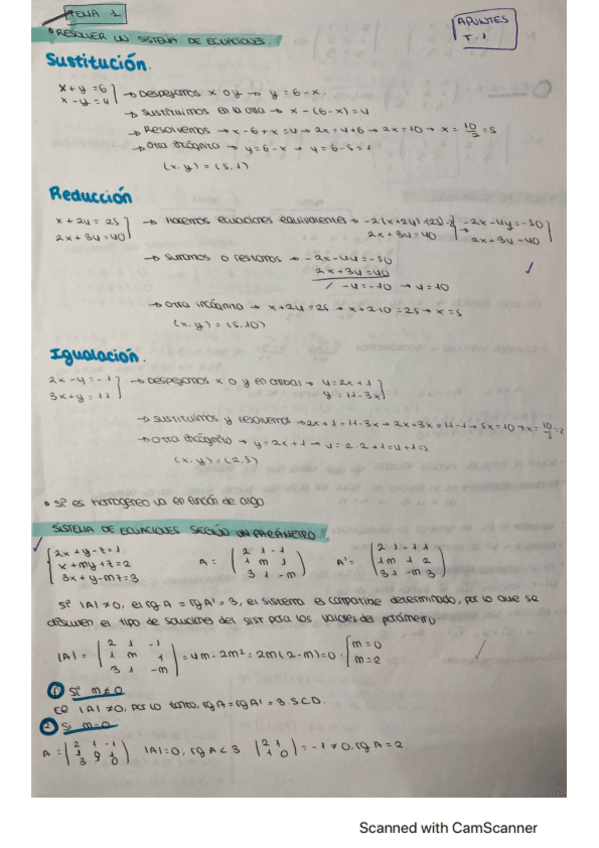 TEMA 1
APUNTES
T.1
• RESOLVER UN SISTEMA DE ECUACIONES
Sustitución.
x+y=6
x-y=4
→ Despejamos x o y → y=6-x
→ Sustituimos en la otra → x-(6-x)=4
→ Resolvemos → x-6+x=4 → 2x=4+6 → 2x=10 → x=10/2=5
→ Otra incógnita → y=6-x → y=6-5=1
(x,y)=(5,1)
Reducción
x+2y=25
2x+3y=40
→ Hacemos ecuaciones equivalentes → -2(x+2y)
2x+3y=40
-2x-4y=-50
2x+3y=40
→ Sumamos o restamos → -2x-4y=-50
2x+3y=40
/ -y=-10 → y=10
→ Otra incógnita → x+2y=25 → x+2·10=25 → x=5
(x,y)=(5,10)
Igualación.
2x-y=-1
3x+y=11
→ Despejamos x o y en ambas → y=2x+1
y=11-3x
→ Sustituimos y resolvemos → 2x+1=11-3x → 2x+3x=11-1 → 5x=10 → x=10/5=2
→ Otra incógnita → y=2x+1 → y=2·2+1=4+1=5
(x,y)=(2,5)
• Si es homogéneo va en función de algo.
SISTEMA DE ECUACIONES SEGÚN UN PARÁMETRO
2x+y-z=1
x+my+z=2
3x+y-mz=3
A= (2 1 -1
1 m 1
3 1 -m)
A'= (2 1 -1 1
1 m 1 2
3 1 -m 3)
Si |A|≠0, el rg A = rg A' = 3, el sistema es compatible determinado, por lo que se
discuten el tipo de soluciones del sist para los valores del parámetro
|A|= |2 1 -1
1 m 1
3 1 -m| =4m-2m²=2m(2-m)=0
m=0
m=2
① Si m≠0
|A|≠0, por lo tanto, rg A = rg A' = 3. S.C.D.
② Si m=0
A= (2 1 -1
1 0 1
3 1 0) |A|=0, rg A<3 |2 1
1 0| =-1≠0, rg A=2.
Scanned with CamScanner